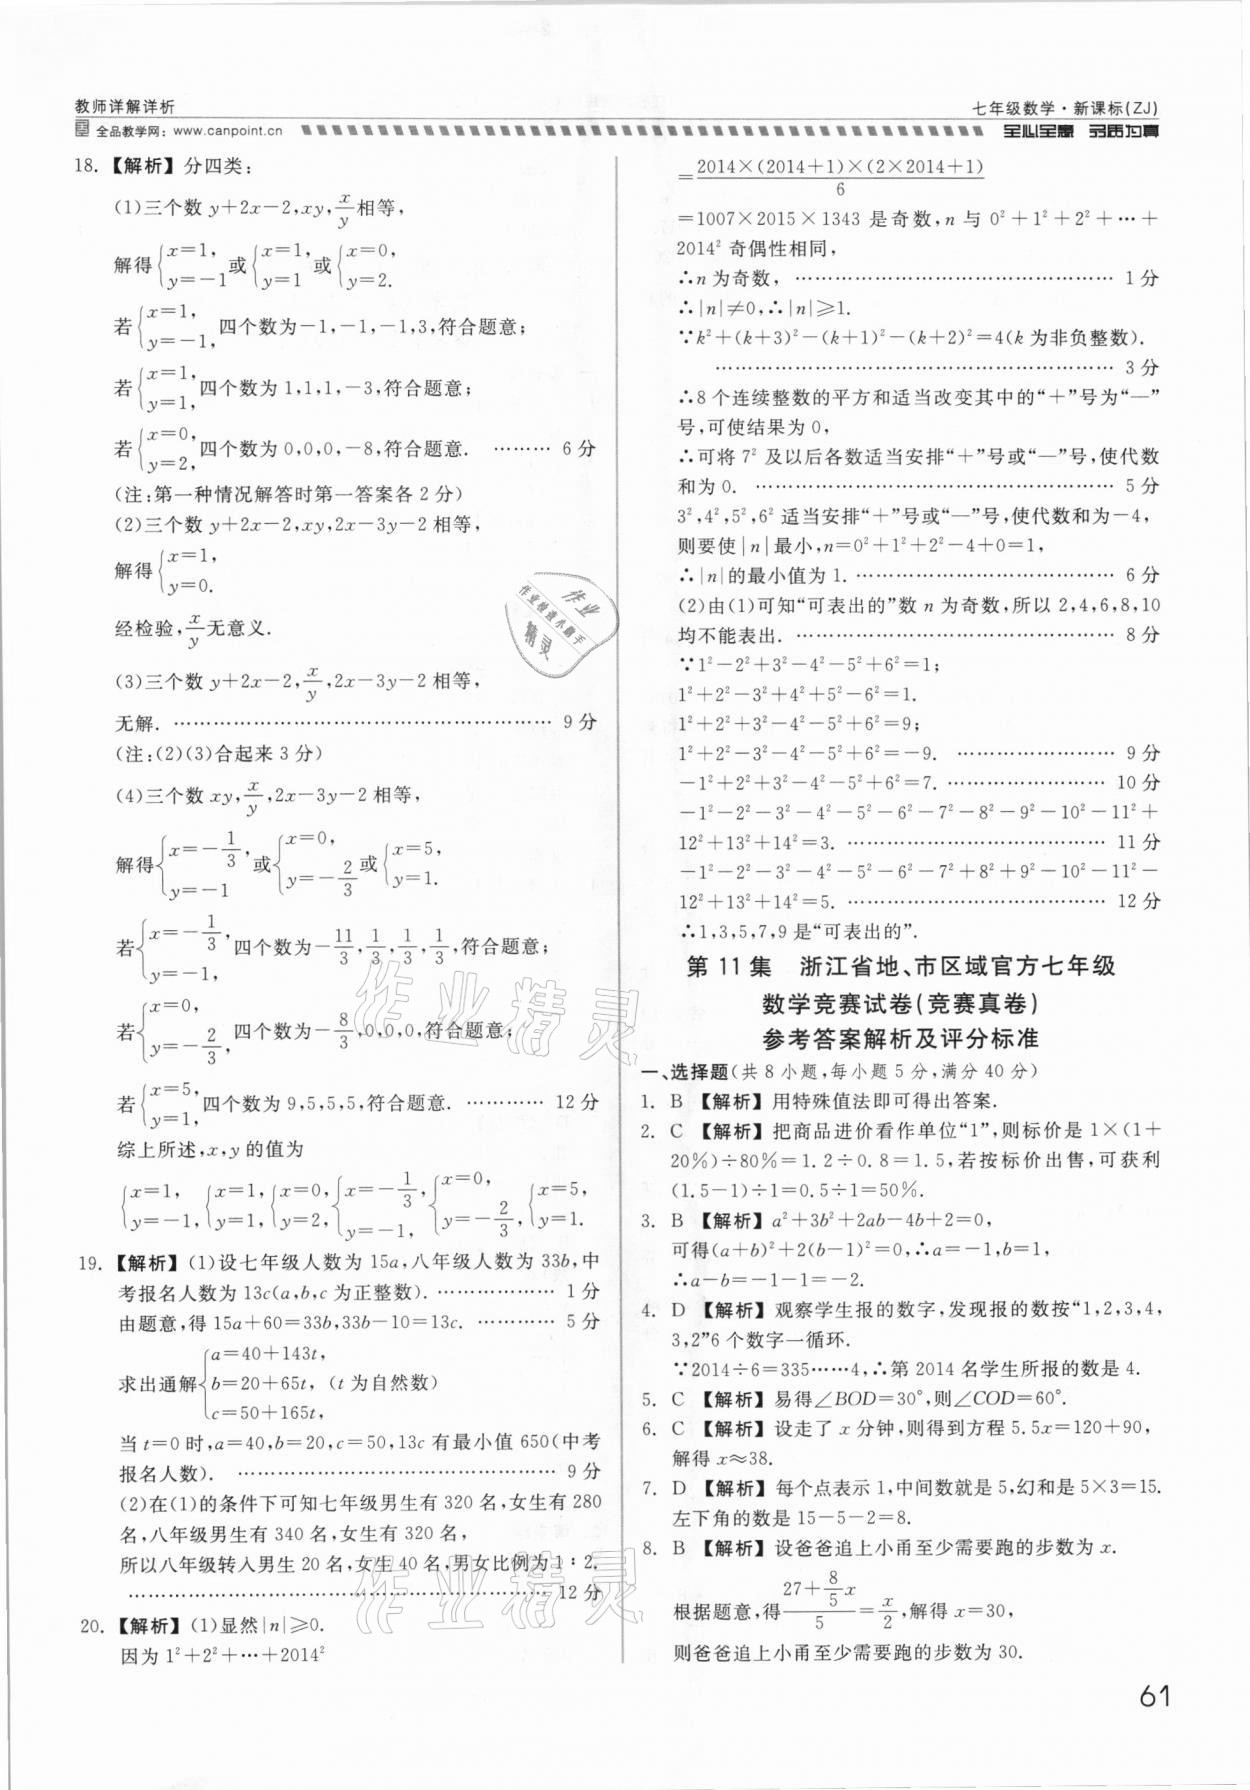 教师详解详析
七年级数学·新课标(ZJ)
全品教学网:www.canpoint.cn
全心全意 务质为真
18. 【解析】分四类:
(1)三个数 y+2x-2,xy,x/y相等,
解得{x=1, y=-1 或{x=1, y=1 或{x=0, y=2.
若{x=1, y=-1, 四个数为-1,-1,-1,3,符合题意;
若{x=1, y=1, 四个数为1,1,1,-3,符合题意;
若{x=0, y=2, 四个数为0,0,0,-8,符合题意. ……… 6分
(注:第一种情况解答时第一答案各2分)
(2)三个数 y+2x-2,xy,2x-3y-2相等,
解得{x=1, y=0.
经检验,x/y无意义.
(3)三个数 y+2x-2,x/y,2x-3y-2相等,
无解. ………………………………………………… 9分
(注:(2)(3)合起来3分)
(4)三个数 xy,x/y,2x-3y-2相等,
解得{x=-1/3, y=-1 或{x=0, y=-2/3 或{x=5, y=1.
若{x=-1/3, y=-1, 四个数为-11/3,1/3,1/3,1/3,符合题意;
若{x=0, y=-2/3, 四个数为-8/3,0,0,0,符合题意;
若{x=5, y=1, 四个数为9,5,5,5,符合题意. ………… 12分
综上所述,x,y的值为
{x=1, y=-1, {x=1, y=1, {x=0, y=2, {x=-1/3, y=-1, {x=0, y=-2/3, {x=5, y=1.
19. 【解析】(1)设七年级人数为15a,八年级人数为33b,中
考报名人数为13c(a,b,c为正整数). ……………… 1分
由题意,得15a+60=33b,33b-10=13c. ………… 5分
求出通解{a=40+143t, b=20+65t, c=50+165t, (t为自然数)
当t=0时,a=40,b=20,c=50,13c有最小值650(中考
报名人数). ………………………………………… 9分
(2)在(1)的条件下可知七年级男生有320名,女生有280
名,八年级男生有340名,女生有320名,
所以八年级转入男生20名,女生40名,男女比例为1∶2.
……………………………………………………… 12分
20. 【解析】(1)显然|n|≥0.
因为1²+2²+…+2014²
=2014×(2014+1)×(2×2014+1)/6
=1007×2015×1343是奇数,n与0²+1²+2²+…+
2014²奇偶性相同,
∴n为奇数, ………………………………………… 1分
∴|n|≠0,∴|n|≥1.
∵k²+(k+3)²-(k+1)²-(k+2)²=4(k为非负整数).
…………………………………………………… 3分
∴8个连续整数的平方和适当改变其中的“+”号为“—”
号,可使结果为0,
∴可将7²及以后各数适当安排“+”号或“—”号,使代数
和为0. ……………………………………………… 5分
3²,4²,5²,6²适当安排“+”号或“—”号,使代数和为-4,
则要使|n|最小,n=0²+1²+2²-4+0=1,
∴|n|的最小值为1. ………………………………… 6分
(2)由(1)可知“可表出的”数n为奇数,所以2,4,6,8,10
均不能表出. ………………………………………… 8分
∵1²-2²+3²-4²-5²+6²=1;
1²+2²-3²+4²+5²-6²=1.
1²+2²+3²-4²-5²+6²=9;
1²+2²-3²-4²-5²+6²=-9. …………………… 9分
-1²+2²+3²-4²-5²+6²=7. …………………… 10分
-1²-2²-3²-4²-5²-6²-7²-8²-9²-10²-11²+
12²+13²+14²=3. ………………………………… 11分
-1²-2²-3²-4²-5²-6²-7²+8²+9²-10²-11²-
12²+13²+14²=5. ………………………………… 12分
∴1,3,5,7,9是“可表出的”.
第11集 浙江省地、市区域官方七年级
数学竞赛试卷(竞赛真卷)
参考答案解析及评分标准
一、选择题(共8小题,每小题5分,满分40分)
1. B 【解析】用特殊值法即可得出答案.
2. C 【解析】把商品进价看作单位“1”,则标价是1×(1+
20%)÷80%=1.2÷0.8=1.5,若按标价出售,可获利
(1.5-1)÷1=0.5÷1=50%.
3. B 【解析】a²+3b²+2ab-4b+2=0,
可得(a+b)²+2(b-1)²=0,∴a=-1,b=1,
∴a-b=-1-1=-2.
4. D 【解析】观察学生报的数字,发现报的数按“1,2,3,4,
3,2”6个数字一循环.
∵2014÷6=335……4,∴第2014名学生所报的数是4.
5. C 【解析】易得∠BOD=30°,则∠COD=60°.
6. C 【解析】设走了x分钟,则得到方程5.5x=120+90,
解得x≈38.
7. D 【解析】每个点表示1,中间数就是5,幻和是5×3=15.
左下角的数是15-5-2=8.
8. B 【解析】设爸爸追上小甬至少需要跑的步数为x.
根据题意,得(27+8/5x)/5=x/2,解得x=30,
则爸爸追上小甬至少需要跑的步数为30.
61
作业
作业检查小助手
精灵
作业精灵
作业精灵